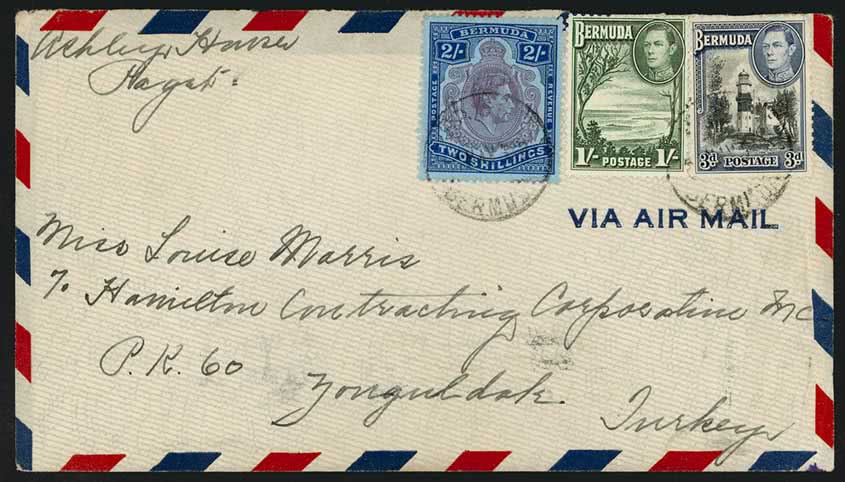 Ashley House
Paget.
BERMUDA
2/- 2/-
POSTAGE REVENUE
TWO SHILLINGS
BERMUDA
1/- POSTAGE 1/-
BERMUDA
3d POSTAGE 3d
BERMUDA
BERMUDA
VIA AIR MAIL
Miss Louise Morris
℅ Hamilton Contracting Corporation Inc
P.K. 60
Zonguldak
Turkey